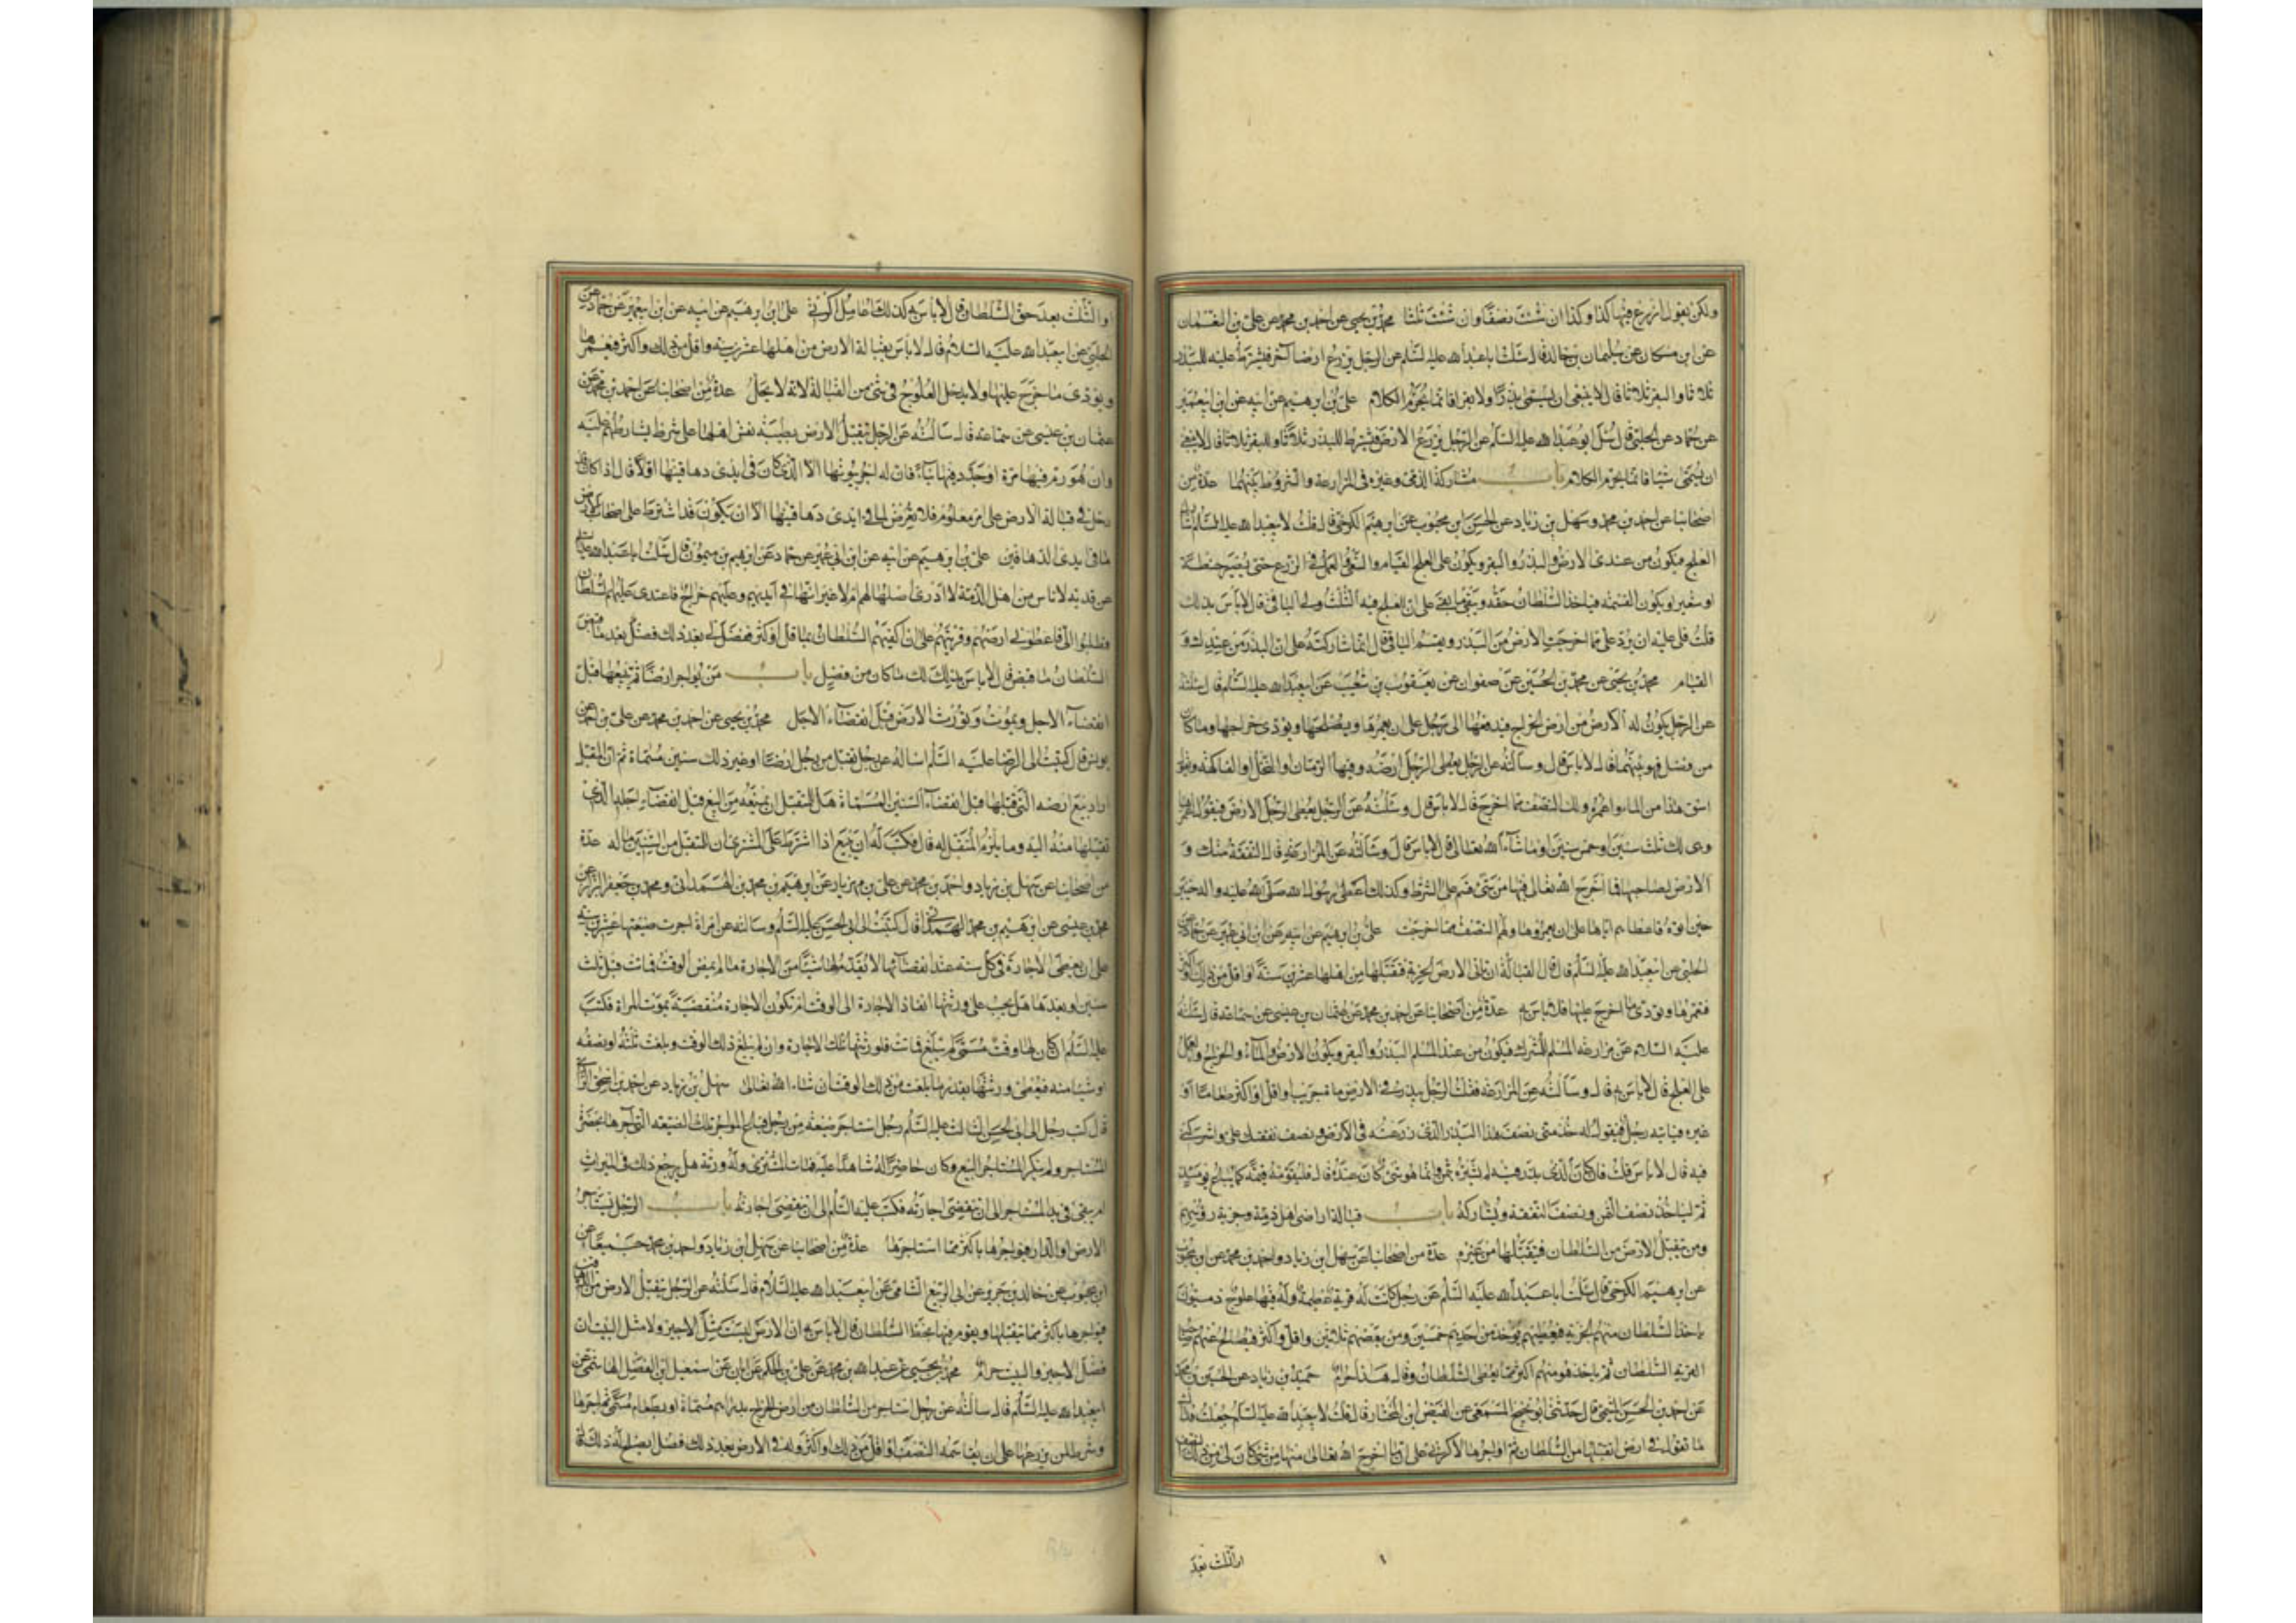 ولكن يقول ازرع فيها كذا وكذا ان شئت نصفا وان شئت ثلثا محمد بن يحيى عن احمد بن محمد عن علي بن النعمان
عن ابن مسكان عن سليمان بن خالد قال سئلت ابا عبد الله عليه السلم عن الرجل يزرع ارض آخر فيشترط عليه للبذر
ثلاثا وللبقر ثلاثا قال لا ينبغي ان يسمي بذرا ولا بقرا فانما يحرم الكلام علي بن ابرهيم عن ابيه عن ابن ابي عمير
عن حماد عن الحلبي قال سئل ابو عبد الله عليه السلم عن الرجل يزرع الارض فيشترط للبذر ثلاثا وللبقر ثلاثا قال لا ينبغي
ان يسمي شيئا فانما يحرم الكلام باب مشاركة الذمي وغيره في المزارعة والشروط بينهما عدة من
اصحابنا عن احمد بن محمد وسهل بن زياد عن الحسن ابن محبوب عن ابرهيم الكرخي قال قلت لابي عبد الله عليه السلم اشارك
العلج فيكون من عندي الارض والبذر والبقر ويكون على العلج القيام والسقي والعمل في الزرع حتى يصير حنطة
او شعير او يكون القسمة فياخذ السلطان حقه ويبقى ما بقي على ان للعلج فيه الثلث ولي الباقي قال لا باس بذلك
قلت فلي عليه ان يرد علي مما اخرجت الارض من البذر ويقسم الباقي قال انما شاركته على ان البذر من عندك و
القيام محمد بن يحيى عن محمد بن الحسين عن صفوان عن يعقوب بن شعيب عن ابي عبد الله عليه السلم قال سئلته
عن الرجل يكون له الارض من ارض الخراج فيدفعها الى رجل على ان يعمرها ويصلحها ويؤدي خراجها وما كان
من فضل فهو بينهما قال لا باس قال وسالته عن الرجل يعطي الرجل ارضه وفيها الرمان او النخل او الفاكهة فيقول
اسق هذا من الماء واعمره ولك النصف مما اخرج قال لا باس قال وسئلته عن الرجل يعطي الرجل الارض فيقول اعمرها
وهي لك ثلث سنين او خمس سنين او ما شاء الله تعالى قال لا باس قال وسالته عن المزارعة قال النفقة منك و
الارض لصاحبها فما اخرج الله تعالى فيها من شيء قسم على الشرط وكذلك اعطى رسول الله صلى الله عليه واله خيبر
حين اتوه فاعطاهم اياها على ان يعمروها ولهم النصف مما اخرجت علي بن ابرهيم عن ابيه عن ابن ابي عمير عن حماد عن
الحلبي عن ابي عبد الله عليه السلم قال قال القبالة ان تاتي الارض الخربة فتقبلها من اهلها عشرين سنة او اقل من ذلك او اكثر
فتعمرها وتؤدي ما اخرج عليها فلا باس به عدة من اصحابنا عن احمد بن محمد عن عثمان بن عيسى عن سماعة قال سئلته
عليه السلام عن مزارعة المسلم المشرك فيكون من عند المسلم البذر والبقر ويكون الارض والماء والخراج والعمل
على العلج قال لا باس به قال وسالته عن المزارعة فقلت الرجل يبذر في الارض مائة جريب او اقل او اكثر طعاما او
غيره فياتيه رجل فيقول له خذ مني نصف هذا البذر الذي زرعته في الارض ونصف نفقتك علي واشركني
فيه قال لا باس قلت فان كان الذي يبذر فيه لم يشتره بثمن وانما هو شيء كان عنده قال فليقومه قيمة كما يباع يومئذ
ثم لياخذ نصف الثمن ونصف النفقة ويشاركه باب قبالة اراضي اهل ذمة وجزية رؤسهم
ومن يتقبل الارض من السلطان فيتقبلها من غيره عدة من اصحابنا عن سهل ابن زياد واحمد بن محمد عن ابن محبوب
عن ابرهيم الكرخي قال سئلت ابا عبد الله عليه السلم عن رجل كانت له قرية عظيمة وله فيها علوج ذميون
ياخذ السلطان منهم الجزية فيعطيهم يؤخذ من احدهم خمسين ومن بعضهم ثلاثين واقل واكثر فيصالح عنهم صاحب
القرية السلطان ثم ياخذ هو منهم اكثر مما يعطي السلطان قال هذا حرام حميد بن زياد عن الحسن بن محمد
عن احمد بن الحسن الميثمي قال حدثني ابو نجيح المسمعي عن الفيض ابن المختار قال قلت لابي عبد الله عليه السلم جعلت فداك
ما تقول في ارض اتقبلها من السلطان ثم اواجرها لاكرتي على ان ما اخرج الله تعالى منها من شيء كان لي من ذلك النصف
او الثلث بعد
او الثلث بعد حق السلطان قال لا باس به كذلك اعامل اكرتي علي ابن ابرهيم عن ابيه عن ابن ابي عمير عن حماد عن
الحلبي عن ابي عبد الله عليه السلام قال لا باس بقبالة الارض من اهلها عشرين سنة واقل من ذلك واكثر فيعمرها
ويؤدي ما خرج عليها ولا يدخل العلوج في شيء من القبالة لانه لا يحل عدة من اصحابنا عن احمد بن محمد عن
عثمان بن عيسى عن سماعة قال سالته عن الرجل يتقبل الارض بطيبة نفس اهلها على شرط يشارطهم عليه
وان هو رم فيها مرمة او جدد فيها بناء فان له اجر بيوتها الا الذي كان في ايدي دهاقينها اولا قال اذا كان قد
دخل في قبالة الارض على امر معلوم فلا يعرض لما في ايدي دهاقينها الا ان يكون قد اشترط على اصحاب الارض
ما في يدي الدهاقين علي بن ابرهيم عن ابيه عن ابن ابي عمير عن حماد عن ابرهيم بن ميمون قال سئلت ابا عبد الله عليه السلم
عن قرية لاناس من اهل الذمة لا ادري اصلها لهم ام لا غير انها في ايديهم وعليهم خراج فاعتدى عليهم السلطان
فطلبوا الي فاعطوني ارضهم وقريتهم على ان اكفيهم السلطان بما قل او كثر ففضل لي بعد ذلك فضل بعد ما قبض
السلطان ما قبض قال لا باس بذلك لك ما كان من فضل باب من يؤاجر ارضا ثم يبيعها قبل
انقضاء الاجل ويموت وتورث الارض قبل انقضاء الاجل محمد بن يحيى عن احمد بن محمد عن علي بن احمد عن
يونس قال كتبت الى الرضا عليه السلم اساله عن رجل تقبل من رجل ارضا او غير ذلك سنين مسماة ثم ان المقبل
اراد بيع ارضه التي قبلها قبل انقضاء السنين المسماة هل للمتقبل ان يمنعه من البيع قبل انقضاء اجله الذي
تقبلها منه اليه وما يلزم المتقبل له قال فكتب له ان يبيع اذا اشترط على المشتري ان للمتقبل من السنين ما له عدة
من اصحابنا عن سهل بن زياد واحمد بن محمد عن علي بن مهزيار عن ابرهيم بن محمد الهمداني ومحمد بن جعفر الرزاز عن
محمد بن عيسى عن ابرهيم بن محمد الهمداني قال كتبت الى ابي الحسن عليه السلم وسالته عن امراة اجرت ضيعتها عشر سنين
على ان تعطى الاجارة في كل سنة عند انقضائها لا يقدم لها شيئا من الاجارة ما لم يمض الوقت فماتت قبل ثلث
سنين او بعدها هل يجب على ورثتها انفاذ الاجارة الى الوقت ام تكون الاجارة منقضية بموت المراة فكتب
عليه السلم ان كان لها وقت مسمى لم يبلغ فماتت فلورثتها تلك الاجارة وان لم تبلغ ذلك الوقت وبلغت ثلثه او نصفه
او شيئا منه فيعطى ورثتها بقدر ما بلغت من ذلك الوقت ان شاء الله تعالى سهل بن زياد عن احمد بن اسحق الرازي
قال كتب رجل الى ابي الحسن الثالث عليه السلم رجل استاجر ضيعة من رجل فباع المؤاجر تلك الضيعة التي آجرها بحضرة
المستاجر ولم ينكر المستاجر البيع وكان حاضرا له شاهدا عليه فمات المشتري وله ورثة هل يرجع ذلك في الميراث
ام يبقى في يد المستاجر الى ان تنقضي اجارته فكتب عليه السلم الى ان تنقضي اجارته باب الرجل يستاجر
الارض او الدار فيؤاجرها باكثر مما استاجرها عدة من اصحابنا عن سهل ابن زياد واحمد بن محمد جميعا عن
ابن محبوب عن خالد بن جرير عن ابي الربيع الشامي عن ابي عبد الله عليه السلام قال سئلته عن الرجل يتقبل الارض من الدهاقين
فيؤاجرها باكثر مما يتقبلها ويقوم فيها بحظ السلطان قال لا باس به ان الارض ليست مثل الاجير ولا مثل البيت ان
فضل الاجير والبيت حرام محمد بن يحيى عن عبد الله بن محمد عن علي بن الحكم عن ابان عن اسمعيل ابن الفضل الهاشمي عن
ابي عبد الله عليه السلم قال سالته عن رجل استاجر من السلطان من ارض الخراج بدراهم مسماة او بطعام مسمى ثم اجرها
وشرط لمن يزرعها على ان يقاسمه النصف او اقل من ذلك او اكثر وله في الارض بعد ذلك فضل ايصلح له ذلك قال